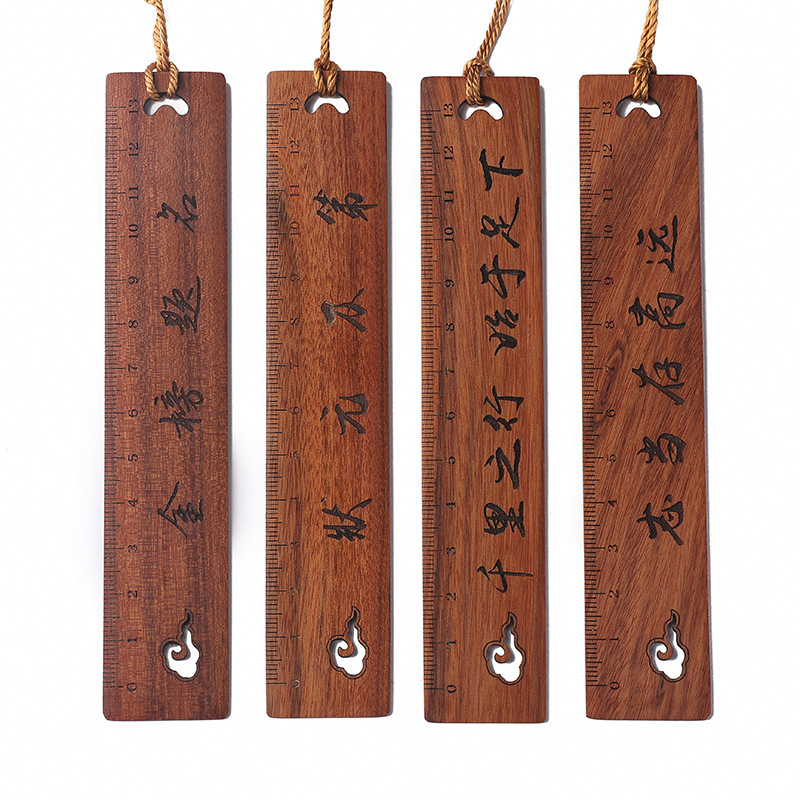 金榜题名
0 1 2 3 4 5 6 7 8 9 10 11 12 13
状元及第
0 1 2 3 4 5 6 7 8 9 10 11 12 13
千里之行 始于足下
0 1 2 3 4 5 6 7 8 9 10 11 12 13
志当存高远
0 1 2 3 4 5 6 7 8 9 10 11 12 13